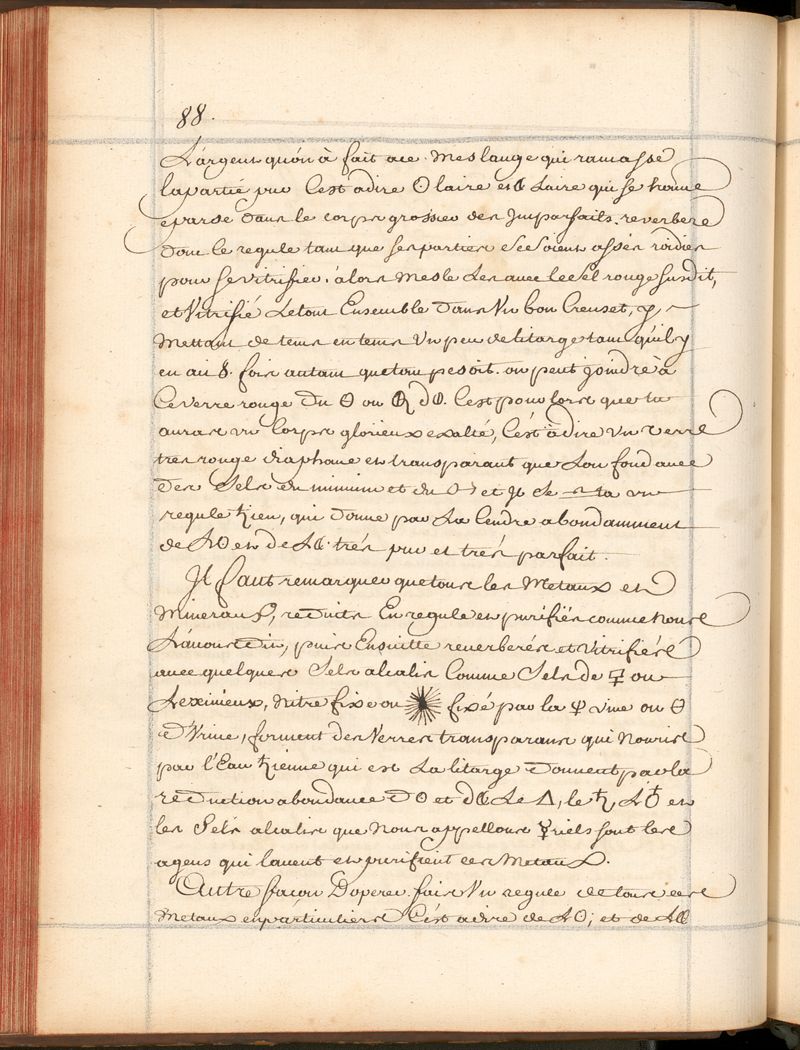 88.
L'argent quón à fait ace meslange qui ramasse
la partié pur C'est adire ☉ laire et ☾ Laire qui se trouve
eparse dans le corps grossier des Jmparfaits. reverbere
donc le regule tam que ses parties soient assés roidies
pour se vitrifier. àlors Mesle Les avec le sel rouge susdit,
et Vitrifié Letout Ensemble dans Vn bon Creuset, y
Mettant de tems en tems Vn peu de litarge tam quil y
en ait 8. fois autam quetout pesoit. on peut joindre à
Ce verre rouge du ☉ ou d☾. C'est pour lors que tu
auras vn Corps glorieux exalté, C'est àdire Vn verre
tres rouge diaphane et transparant que Lon fond avec
des Sels du minium et du et Jl se ta vn
regule ♄ien, qui donne par La Cendre abondamment
de L☉ et de L☾. trés pur et trés parfait.
Jl faut remarquer que tous les Metaux et
Mineraux, reduits En regule et purifiés comme nous
L'avons dit, puis Ensuitte reverberés et Vitrifiés
avec quelques Sels alcalis Comme Sels de ou
Lexivieux, Nitre fixe ou fixé par la ☿ vive ou
d'Vrine, forment des Verres transparans qui Nouris
par l'Eau ♄ienne qui est La litarge donnent par la
reduction abondance d☉ et d☾ Le △, le ♄, L♁ et
les Sels alcalis que nous appellons ☿riels sont les
agens qui lavent et purifient ces Metaux.
Autre facon Doperer. fais Vn regule de tous ces
Metaux en párticuliers C'est adire de L☉; et de L☾